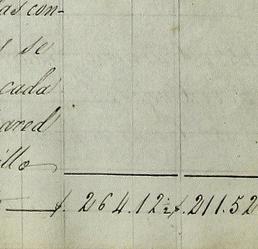 las con-
s se
cada
pared
illo
$. 264.12½ $. 211.52